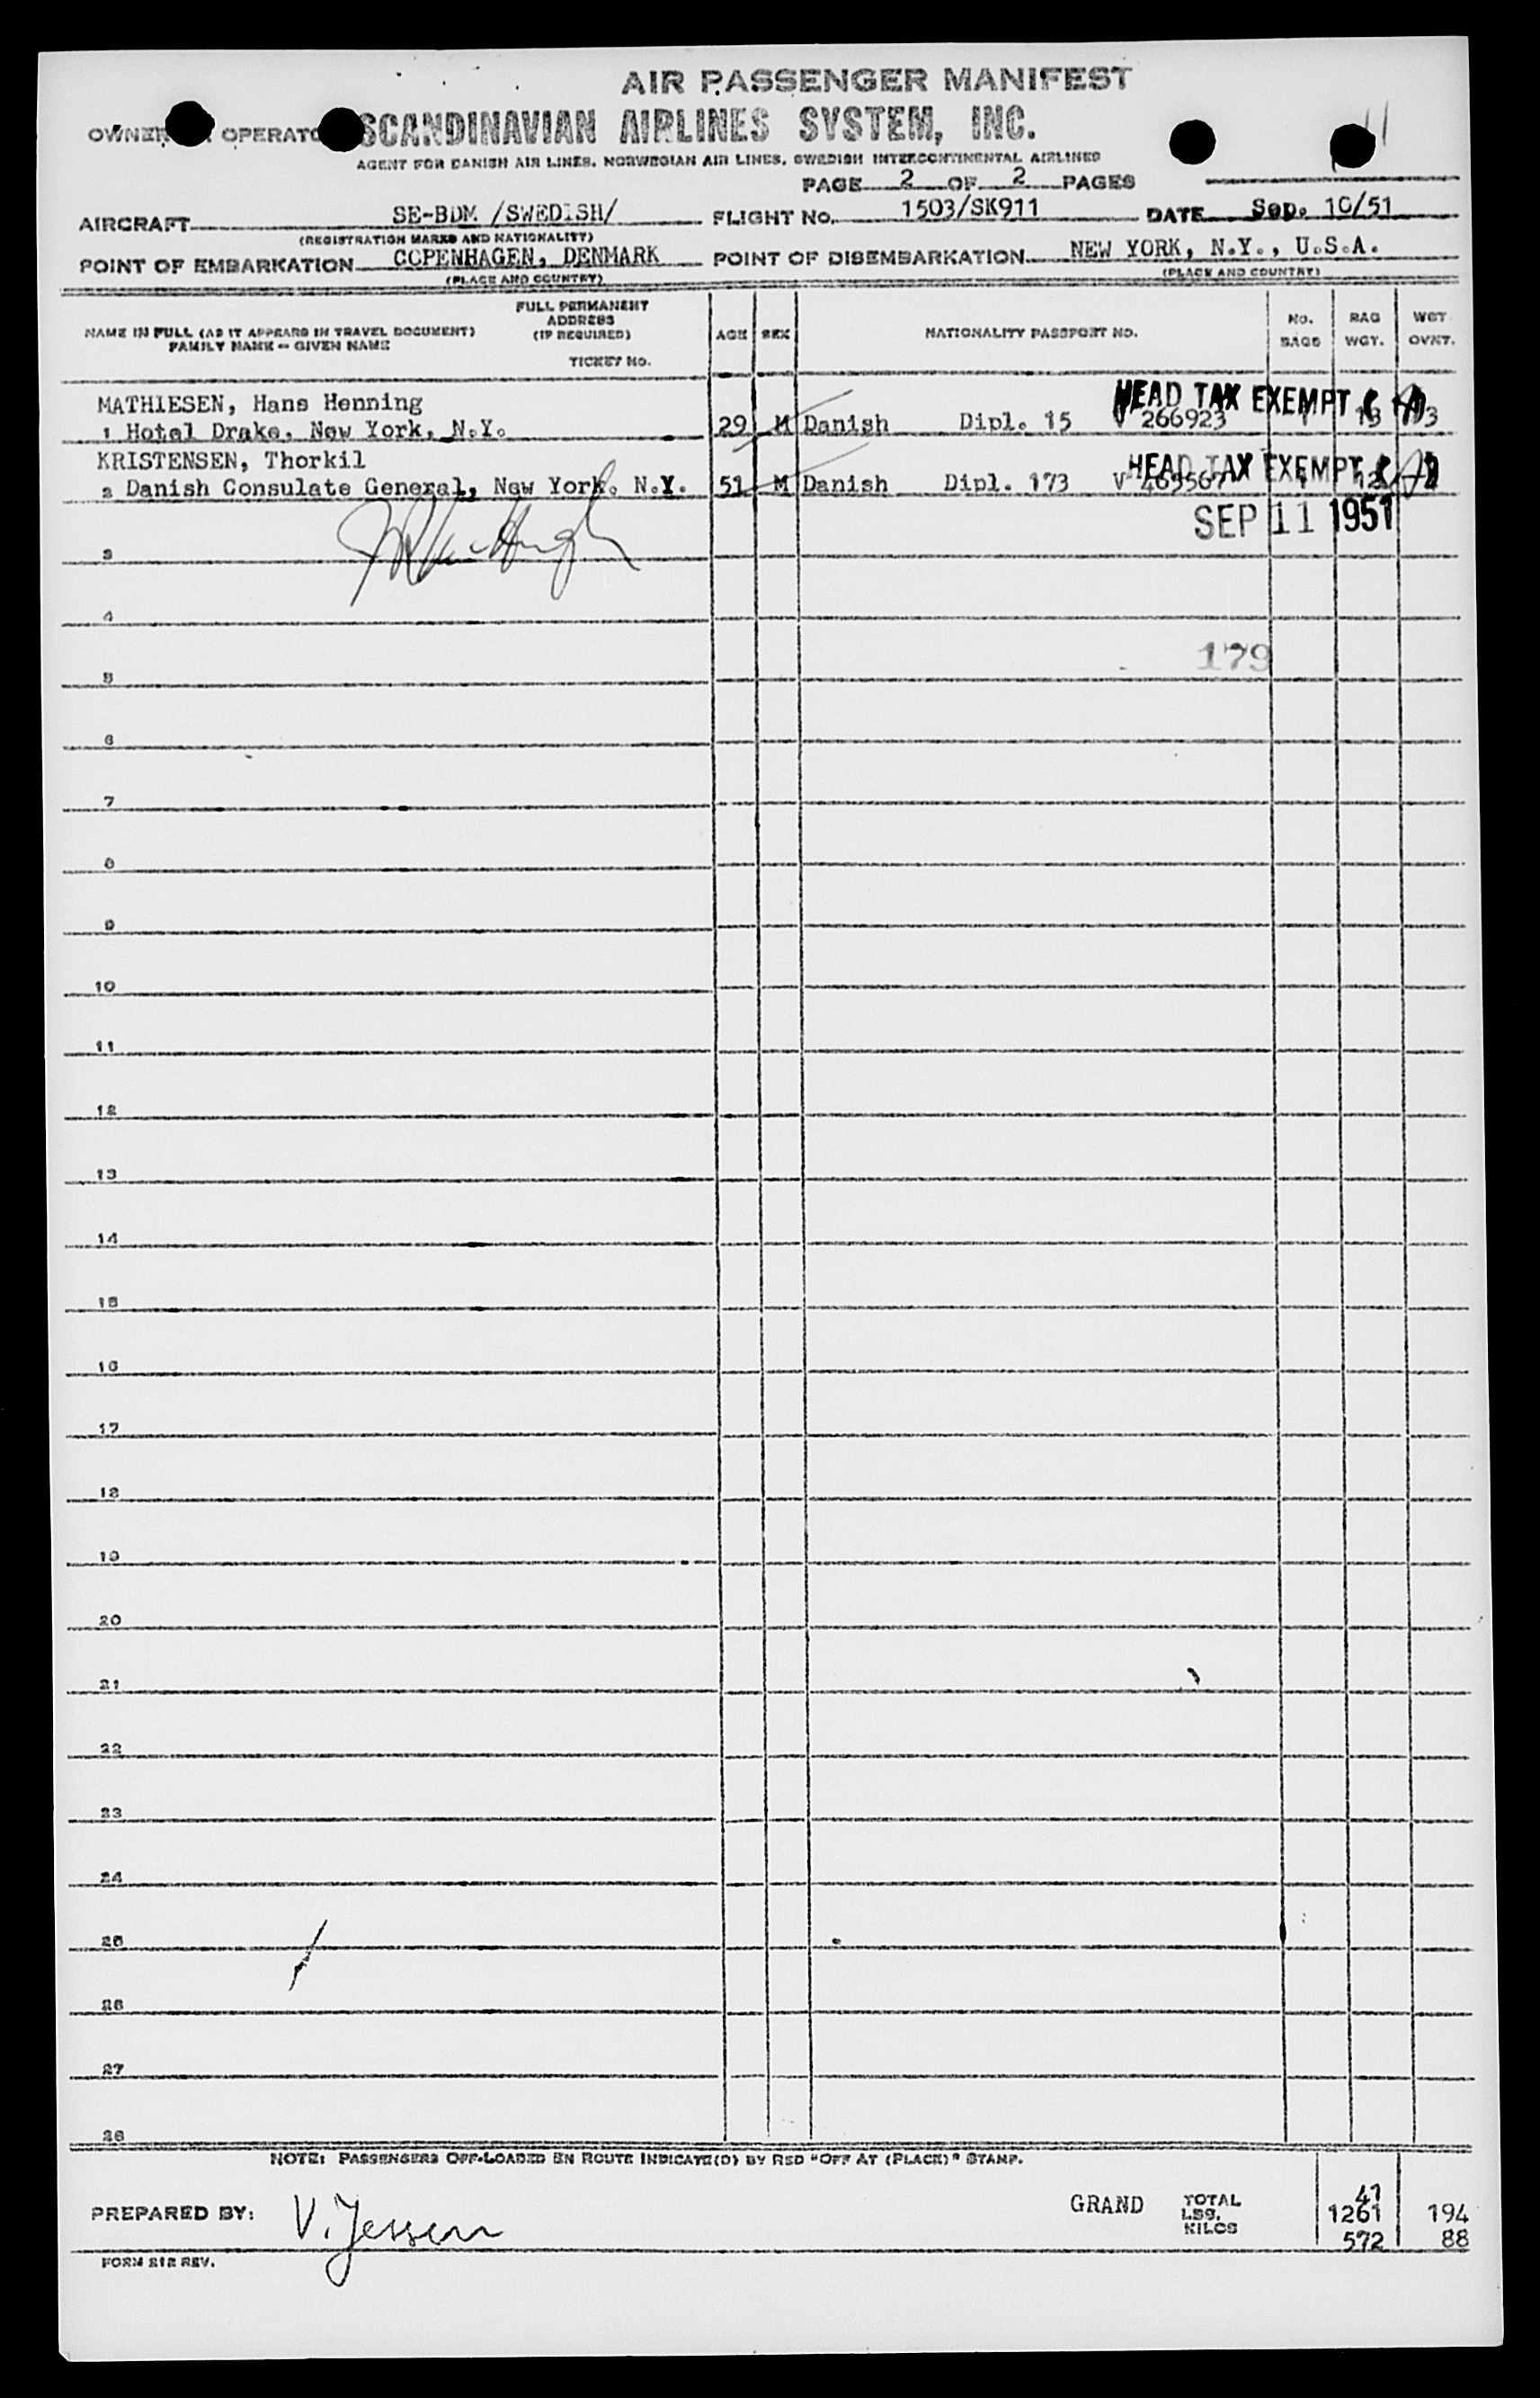 AIR PASSENGER MANIFEST
11
OWNER OPERATO SCANDINAVIAN AIRLINES SYSTEM, INC.
AGENT FOR DANISH AIR LINES, NORWEGIAN AIR LINES, SWEDISH INTERCONTINENTAL AIRLINES
PAGE 2 OF 2 PAGES
AIRCRAFT SE-BDM /SWEDISH/ FLIGHT No. 1503/SK911 DATE Sep. 10/51
(REGISTRATION MARKS AND NATIONALITY)
POINT OF EMBARKATION COPENHAGEN, DENMARK POINT OF DISEMBARKATION NEW YORK, N.Y., U.S.A.
(PLACE AND COUNTRY) (PLACE AND COUNTRY)
NAME IN FULL (AS IT APPEARS IN TRAVEL DOCUMENT)
FAMILY NAME -- GIVEN NAME
FULL PERMANENT
ADDRESS
(IF REQUIRED)
TICKET No.
AGE SEX NATIONALITY PASSPORT NO. No. BAGS BAG WGT. WGT OVWT.
MATHIESEN, Hans Henning HEAD TAX EXEMPT
1 Hotel Drake, New York, N.Y. 29 M Danish Dipl. 15 V 266923 1 13 13
KRISTENSEN, Thorkil HEAD TAX EXEMPT
2 Danish Consulate General, New York, N.Y. 51 M Danish Dipl. 173 V 12
SEP 11 1951
3
4
179
5
6
7
8
9
10
11
12
13
14
15
16
17
18
19
20
21
22
23
24
25
26
27
28
NOTE: PASSENGERS OFF-LOADED EN ROUTE INDICATE(D) BY RED "OFF AT (PLACE)" STAMP.
PREPARED BY: V. Jessen GRAND TOTAL 41
LBS. 1261 194
KILOS 572 88
FORM 212 REV.